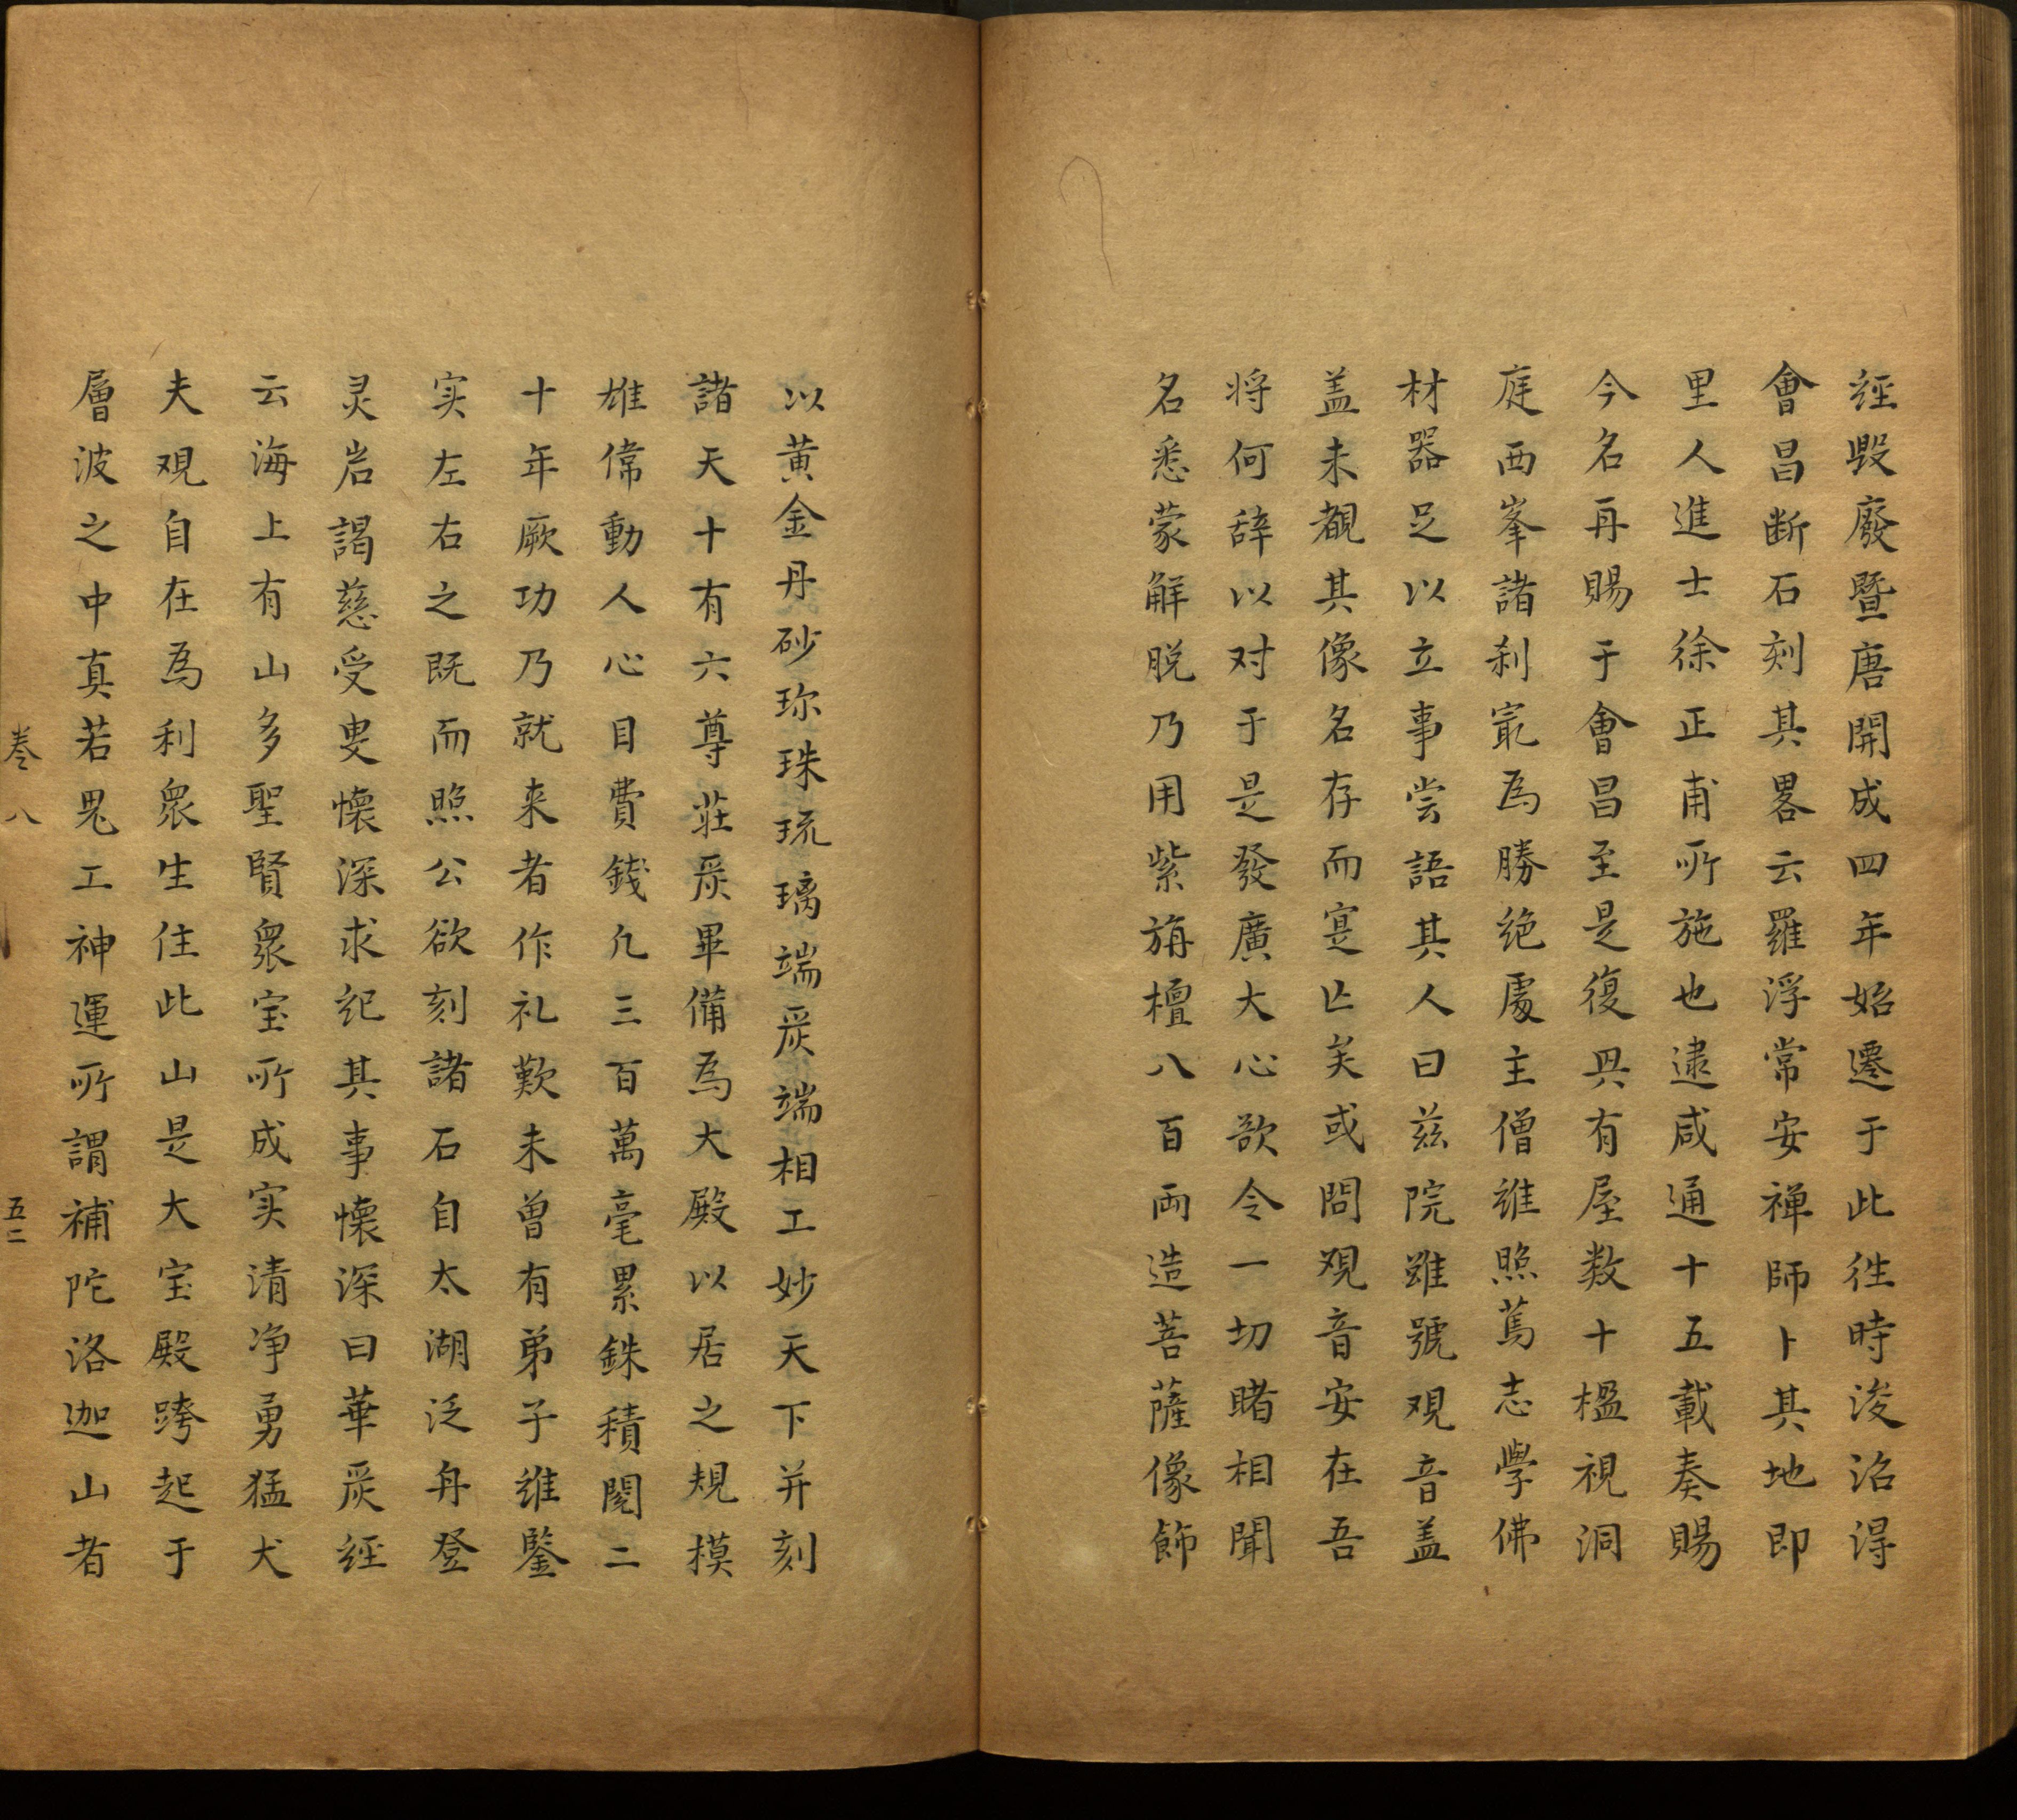 经毁廢暨唐開成四年始遷于此徃時浚沼得
會昌断石刻其畧云羅浮常安禅師卜其地即
里人進士徐正甫所施也逮咸通十五載奏賜
今名再賜于會昌至是復興有屋数十楹視洞
庭西峯諸刹冣為勝绝處主僧維照篤志學佛
材器足以立事尝語其人曰兹院雖號观音盖
盖未覩其像名存而寔亾矣或問观音安在吾
将何辞以对于是發廣大心欲令一切睹相聞
名悉蒙解脱乃用紫旃檀八百両造菩薩像飾
以黄金丹砂珎珠琉璃端嚴端相工妙天下并刻
諸天十有六尊莊嚴畢備為大殿以居之規模
雄偉動人心目費錢凡三百萬毫累銖積閱二
十年厥功乃就来者作礼歎未曽有弟子維鑒
实左右之既而照公欲刻諸石自太湖泛舟登
灵岩謁慈受叟懐深求记其事懐深曰華嚴经
云海上有山多聖賢衆宝所成实清净勇猛犬
夫观自在為利衆生住此山是大宝殿跨起于
層波之中真若鬼工神運所謂補陀洛迦山者
卷八
五二